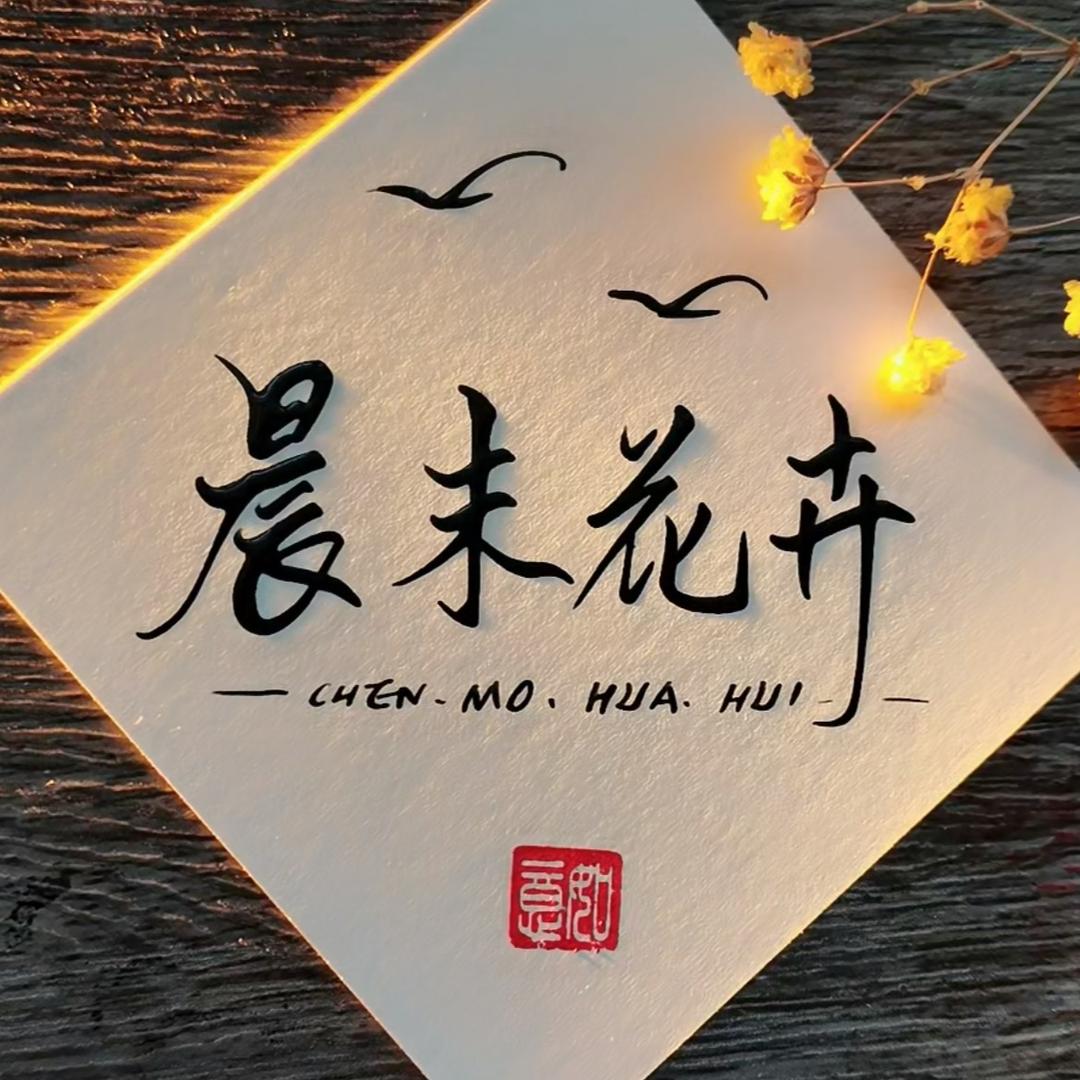 晨末花卉
CHEN. MO. HUA. HUI
如意